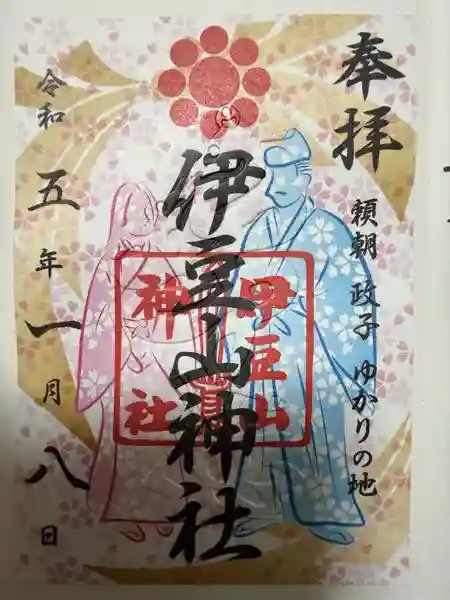 奉拝
頼朝 政子 ゆかりの地
伊豆山神社
伊豆山
神社
令和五年一月八日